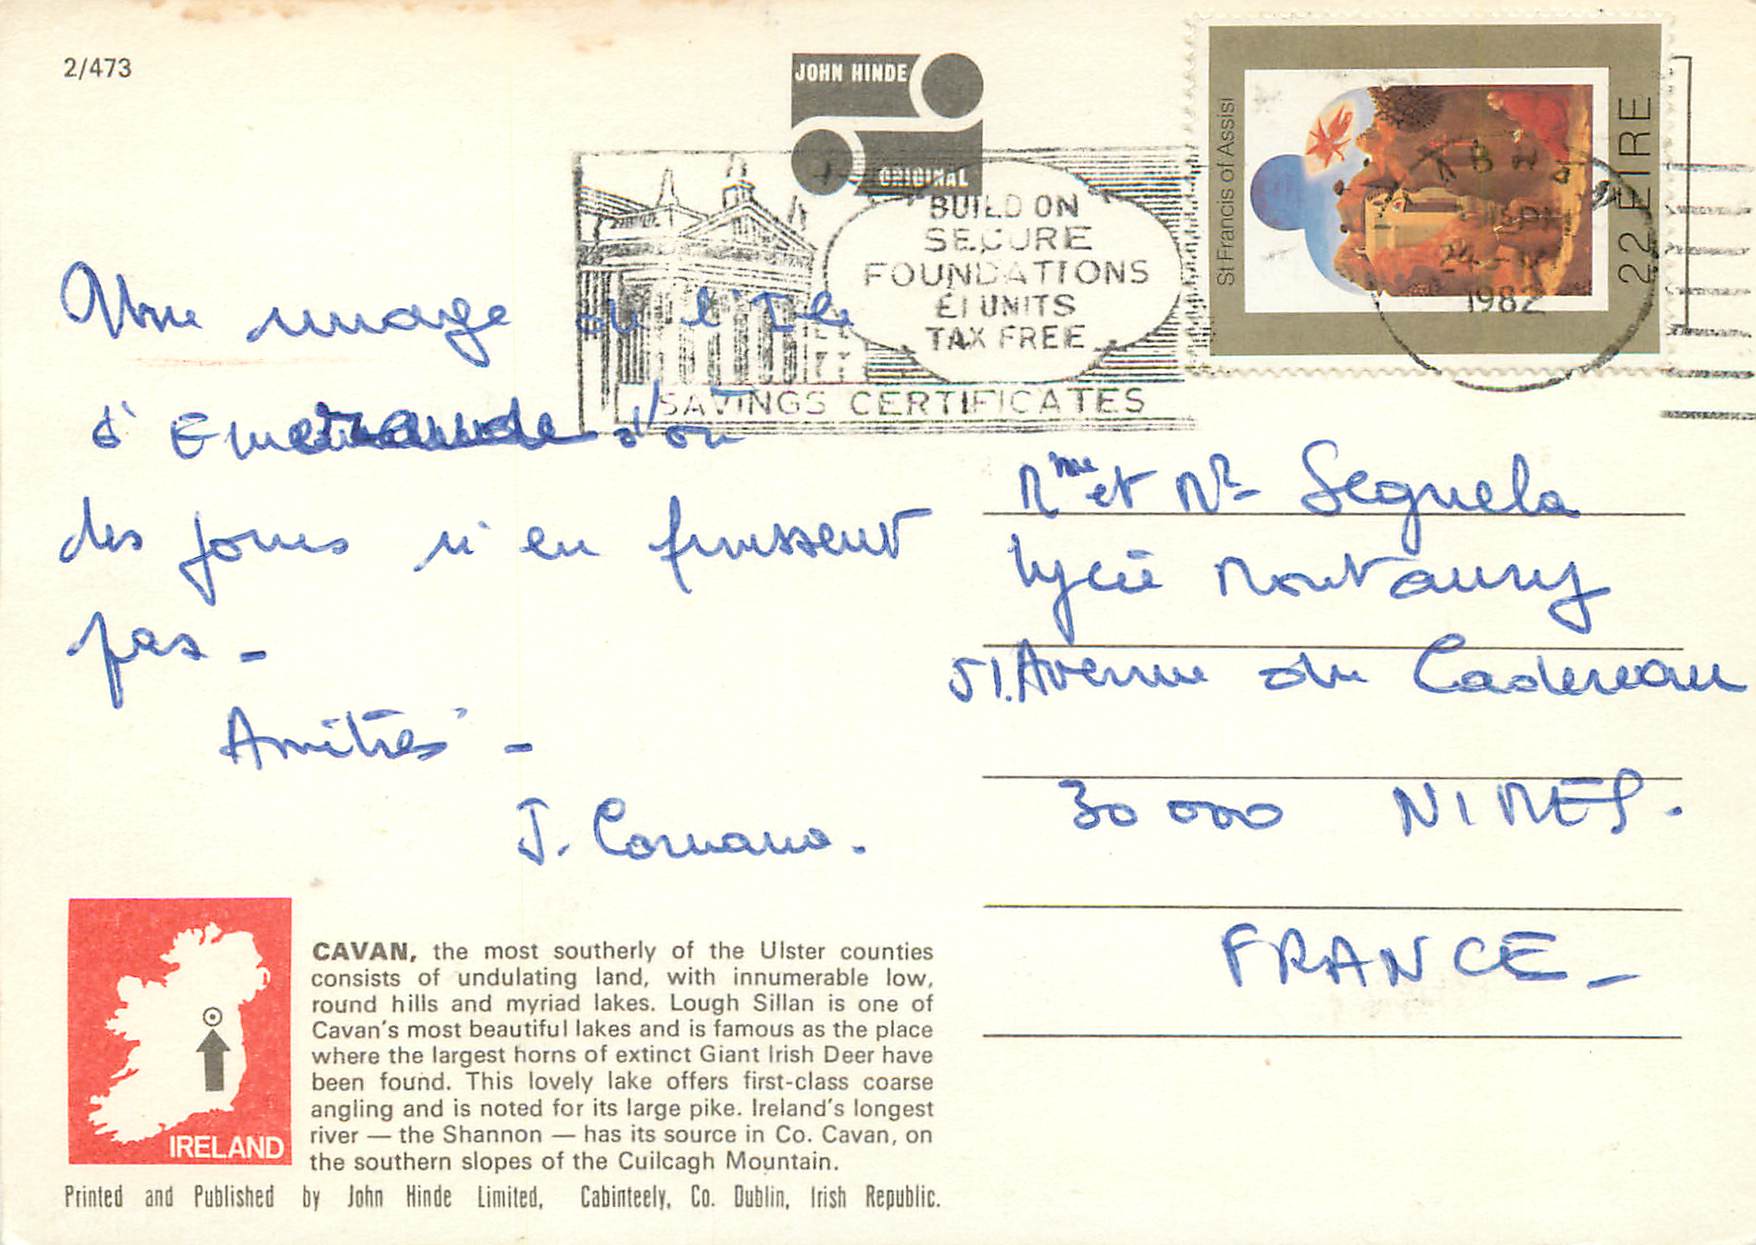 2/473
JOHN HINDE
ORIGINAL
St Francis of Assisi
22 EIRE
1982
BUILD ON
SECURE
FOUNDATIONS
£1 UNITS
TAX FREE
SAVINGS CERTIFICATES
Une image de l'Ile
d'Emeraude d'où
des jours n'en finissent
pas -
Amitiés -
J.
Mme et Mr Seguela
Lycée Montaury
51. Avenue du Cadereau
30 000 NIMES.
FRANCE -
IRELAND
CAVAN, the most southerly of the Ulster counties
consists of undulating land, with innumerable low,
round hills and myriad lakes. Lough Sillan is one of
Cavan's most beautiful lakes and is famous as the place
where the largest horns of extinct Giant Irish Deer have
been found. This lovely lake offers first-class coarse
angling and is noted for its large pike. Ireland's longest
river — the Shannon — has its source in Co. Cavan, on
the southern slopes of the Cuilcagh Mountain.
Printed and Published by John Hinde Limited, Cabinteely, Co. Dublin, Irish Republic.